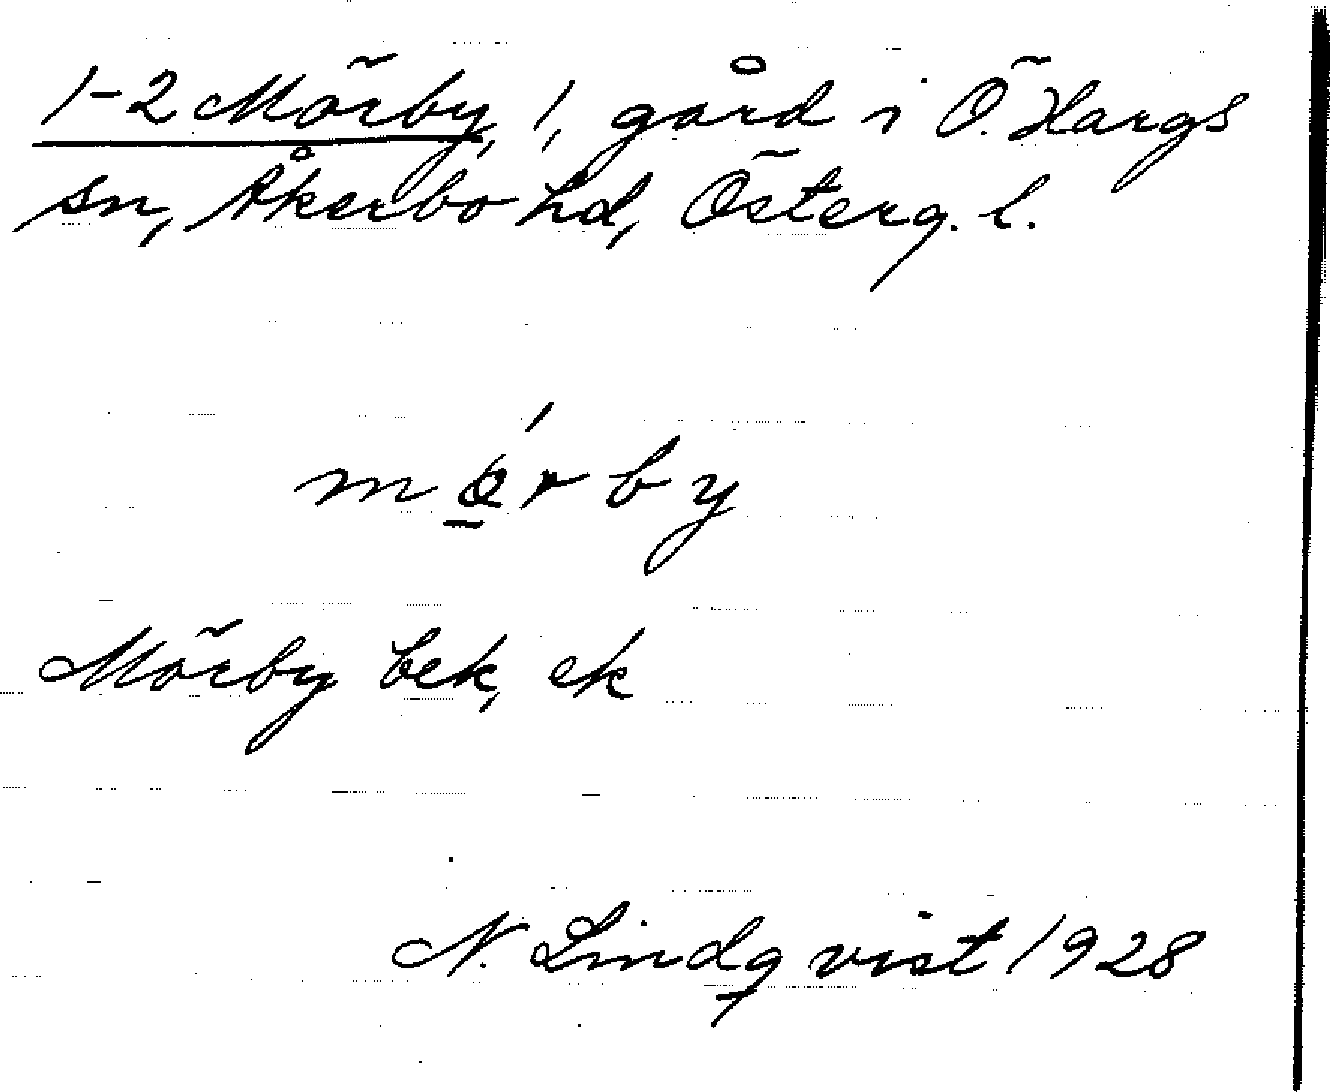 1-2 Mörby, 1, gård i Ö. Hargs
sn, Åkerbo hd, Österg. l.
mǿ̱rby
Mörby bek, ek
N. Lindqvist 1928